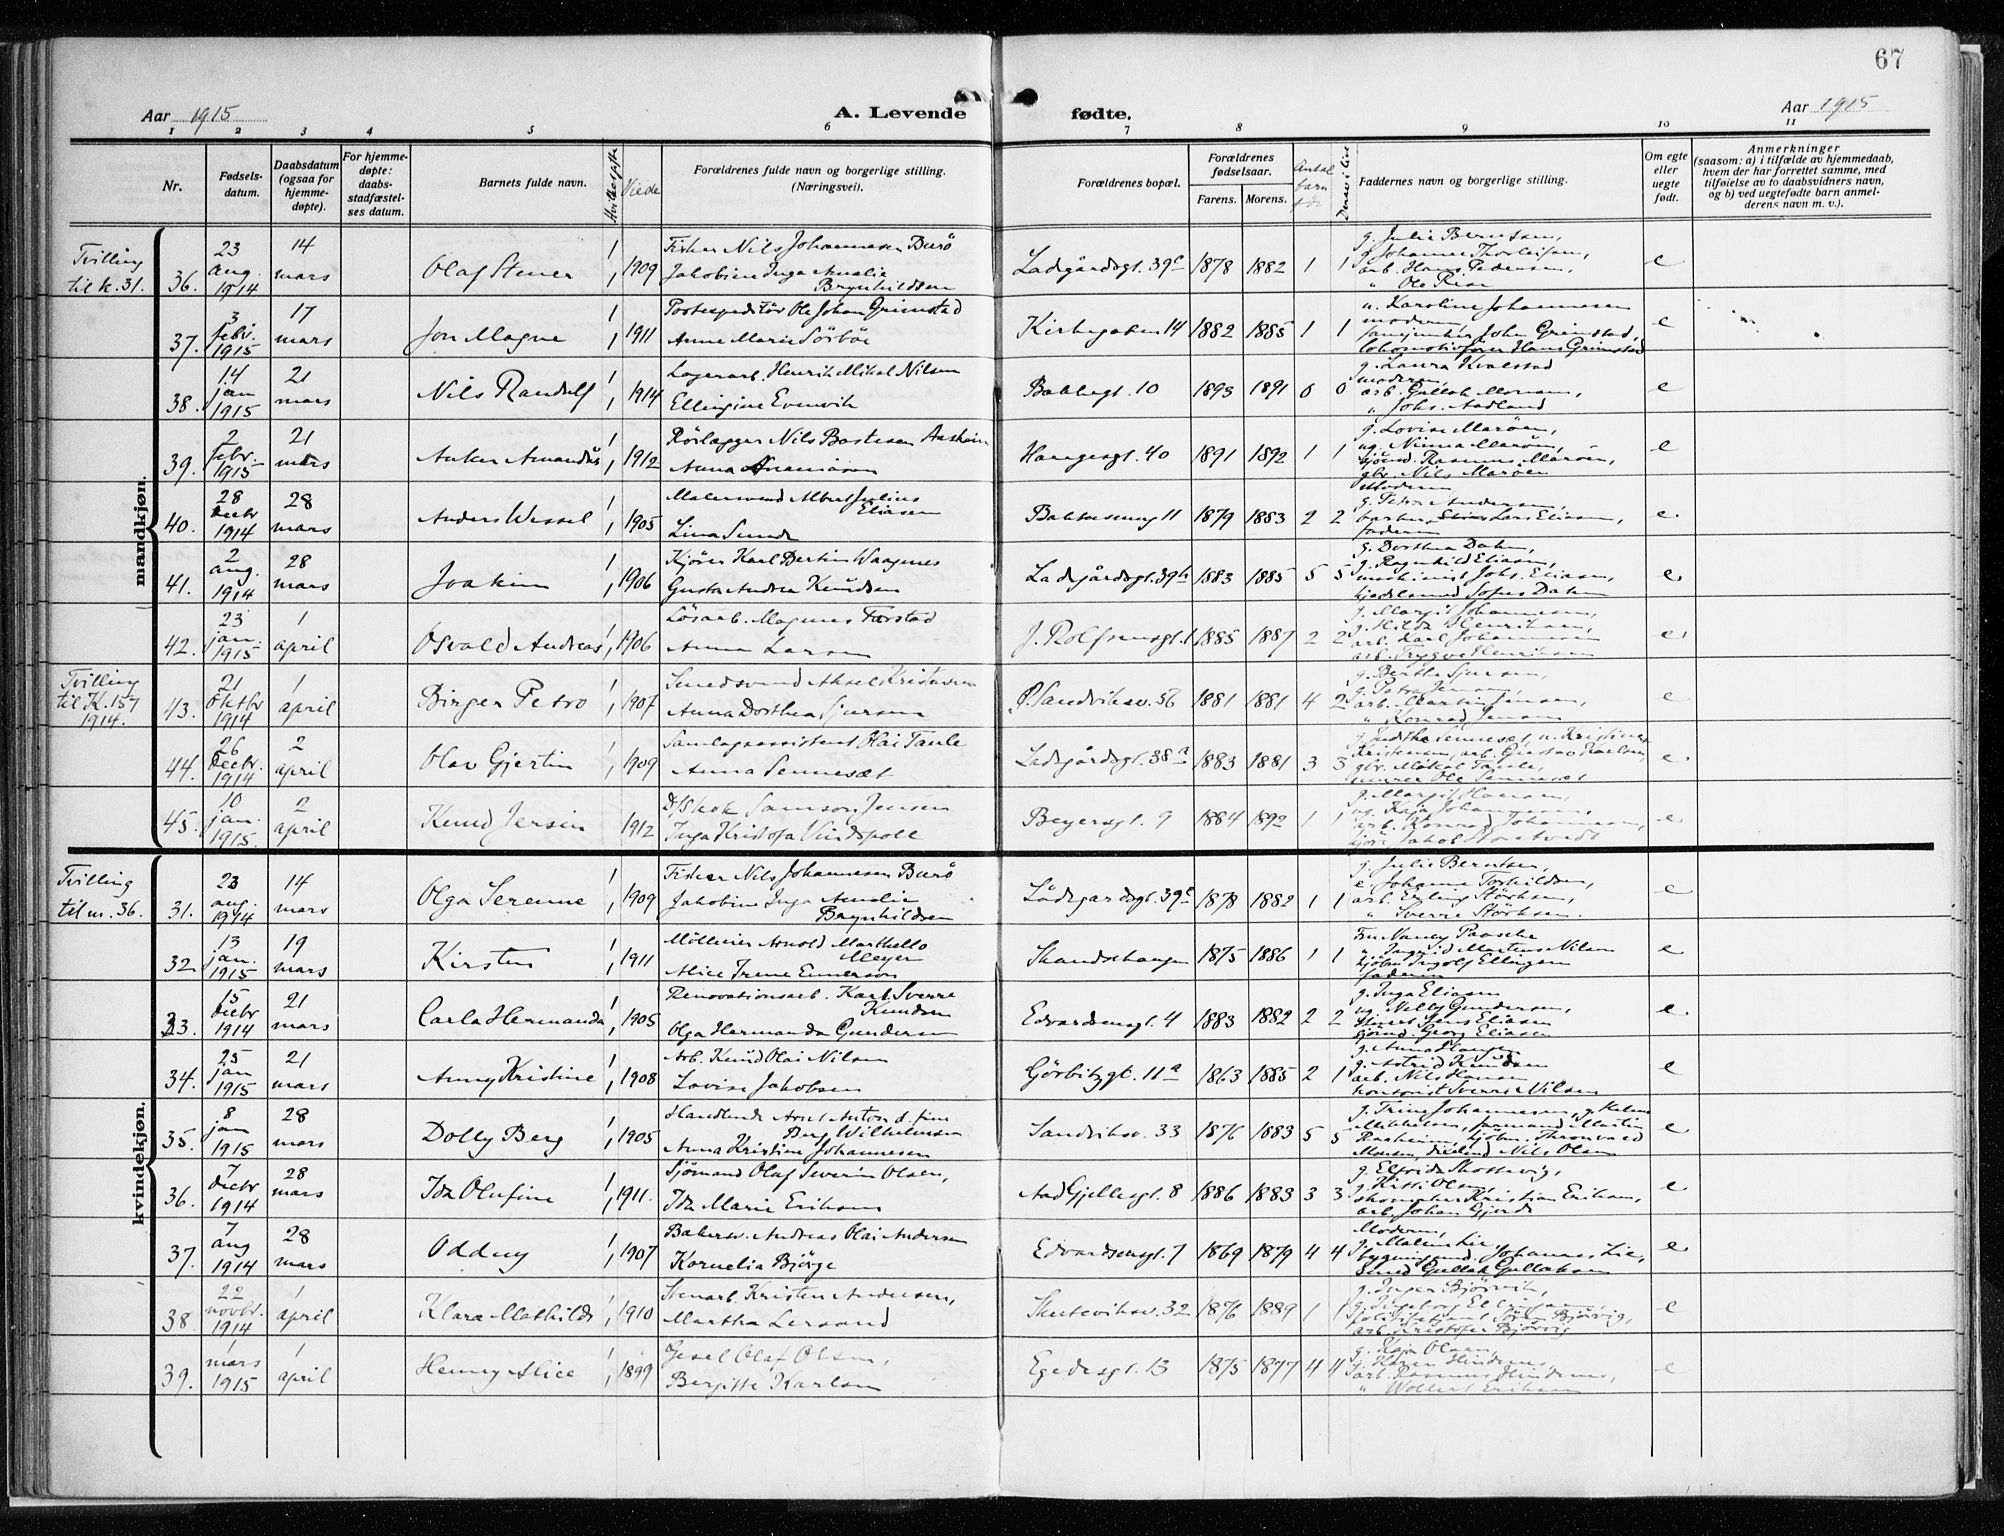 67
Aar 1915
A. Levende fødte.
Aar 1915
1 2 3 4 5 6 7 8 9 10 11
Nr.
Fødsels-
datum.
Daabsdatum
(ogsaa for
hjemme-
døpte).
For hjemme-
døpte:
daabs-
stadfæstel-
ses datum.
Barnets fulde navn.
Viede
Forældrenes fulde navn og borgerlige stilling.
(Næringsvei).
Forældrenes bopæl.
Forældrenes
fødselsaar.
Farens. Morens.
Antal
barn
Derav i live
Faddernes navn og borgerlige stilling.
Om egte
eller
uegte
født.
Anmerkninger
(saasom: a) i tilfælde av hjemmedaab,
hvem der har forrettet samme, med
tilføielse av to daabsvidners navn,
og b) ved uegtefødte barn anmel-
derens navn m. v.).
mandkjøn.
Tvilling
til k. 31.
36.
23
aug.
1914
14
mars
Olaf Stener
1909
Fisker Nils Johannesen Burö
Jakobine Inga Amalie
Brynhildsen
Ladgårdsgt. 39c 1878 1882 1 1
g. Julie Berntsen,
arb. Hans Pedersen,
e
37.
3
febr.
1915
17
mars
Jon Magne
1911
Postexpeditör Ole Johan Grimstad
Anne Marie Sörböe
Kirkegaten 14 1882 1885 1 1
u. Karoline Johannesen
moderen
John Grimstad,
lokomotivförer Hans Grimstad
e
38.
14
jan
1915
21
mars
Nils Randulf
1914
Lagerarb. Henrik Mikal Nilsen
Ellingine Evenvik
Bakkegt. 10 1893 1891 0 0
g. Laura Kvalstad
moderen,
arb. Gullak Monsen,
" Johs. Aadland
e
39.
2
febr.
1915
21
mars
1912
Rörlægger Nils Bastesen Aasheim
Hangesgt. 40 1891 1892 1 1
g. Lovise Maröen,
ug. Ninna Maröen,
sjömd. Rasmus Maröen,
gbr. Nils Maröen
e
40.
28
decbr
1914
28
mars
Anders Wessel
1905
Malersvend Albert Julius
Eliasen
Lina Sunde
1879 1883 2 2
Moderen
g. Petra Andersen,
Lars Eliasen,
faderen
e
41.
2
aug.
1914
28
mars
Joakim
1906
Kjörer Karl Bertin Waagenes
Gusta Andrea Knudsen
Ladgårdsgt. 39b 1883 1885 5 5
g. Dorthea Dahm,
g. Ragnhild Eliasen,
maskinist Johs. Eliasen,
Sofus Dahm
e
42.
23
jan.
1915
1
april
Osvald Andreas
1906
Lösarb. Magnus Farstad
Anna Larsen
J. Rolfsensgt. 1 1885 1887 2 2
g. Margit Johannesen,
g. Hilda Henriksen,
arb. Karl Johannesen
arb. Trygve Henriksen
e
Tvilling
til K. 157
1914.
43.
21
oktbr
1914
1
april
Birger Petro
1907
Smedsvend Aksel Kristensen
Anna Dorthea Sjursen
Ø. Sandviksv. 56 1881 1881 4 2
g. Bertha Sjursen,
g. Petra Jensen,
arb. Martin Jensen,
" Konrad Jensen
e
44.
26
decbr.
1914
2
april
Olav Gjertin
1909
Samlagsassistent Olai Taule
Anna Sennesæt
Ladgårdsgt. 38a 1883 1881 3 3
Kristensen, arb. Gustav Karlsen,
gbr. Mikal Taule,
murer Ole Sennesæt
e
45.
10
jan.
1915
2
april
Knud Jensin
1912
D/Skok Samson Jensen
Inga Kristofa Vindspoll
Beyersgt. 9 1884 1892 1 1
g. Margit Hansen,
ug. Kaja Johannesen,
arb. Konrad Johannesen,
e
kvindekjøn.
Tvilling
til m. 36.
31.
23
aug.
1914
14
mars
Olga Serenne
1909
Fisker Nils Johannesen Burö
Jakobine Inga Amalie
Brynhildsen
Ladgardsgt. 39c 1878 1882 1 1
g. Julie Berntsen,
e. Johanna Torkildsen,
arb. Erling Störksen,
" Sverre Störksen.
e
32
13
jan.
1915
19
mars
Kirsten
1911
Möllereier Arnold Marthello
Meyer
Alice Irene Ennerson
Skandsehaugen 1875 1886 1 1
Fru Nancy Paasche
" Ingrid Martens Nilsen
kjöbm. Ingolf Ellingsen
faderen
e
33.
15
decbr
1914
21
mars
Carla Hermanda
1905
Renovationsarb. Karl Sverre
Knudsen
Olga Hermanda Gundersen
Edvardsensgt. 4 1883 1882 2 2
g. Inga Eliasen
ug. Nelly Gundersen,
Jens Eliasen
sjömd. Georg Eliasen
e
34.
25
jan
1915
21
mars
Anny Kristine
1908
Arb. Knud Olai Nilsen
Lovise Jakobsen
Görbitzgt. 11a 1863 1885 2 1
g. Anna Hansen
g. Astrid Knudsen
arb. Nils Hansen
kontorist Sverre Nilsen
e
35.
8
jan
1915
28
mars
Dolly Berg
1905
Handlende Arnt Anton d. fine
Berg Wilhelmsen
Anna Kristine Johannesen
Sandviksv. 33 1876 1883 5 5
g. Trine Johannesen,
Mikkelsen, formand Martin
Monsen, Nils Olsen
e
36.
7
decbr
1914
28
mars
Ida Olufine
1911.
Sjömand Olaf Severin Olsen,
Ida Marie Eriksen
Aad Gjellesgt. 8 1886 1883 3 3
g. Elfrida Skottevig,
g. Kitti Olsen,
skomaker Kristian Eriksen,
arb. Johan Gjerde
e
37.
7
aug
1914
28
mars
Oddny
1907
Bakersv. Andreas Olai Andersen
Kornelia Björge
Edvardsensgt. 7 1869 1879 4 4
Moderen,
g. Malin Lie,
bygningssnd. Johannes Lie,
Smed Gullak Gullaksen
e
38.
22
novbr.
1914
1
april
Klara Mathilde
1910
Stenarb. Kristen Andersen,
Martha Lersund
Skuteviksv. 32 1876 1889 1 1
g. Inger Björvik,
g. Ingebor Ellingsen,
politibetjent Sören Björvig,
arb. Kristofer Björvig
e
39.
1
mars
1915
1
april
Henny Alice
1899
Gesel Olaf Olsen,
Bergitte Karlsen
Egedesgt. 13 1875 1877 4 4
g. Kaja Olsen,
g. Karen Hindenes,
arb. Rasmus Hindenes,
" Wollert Eriksen
e